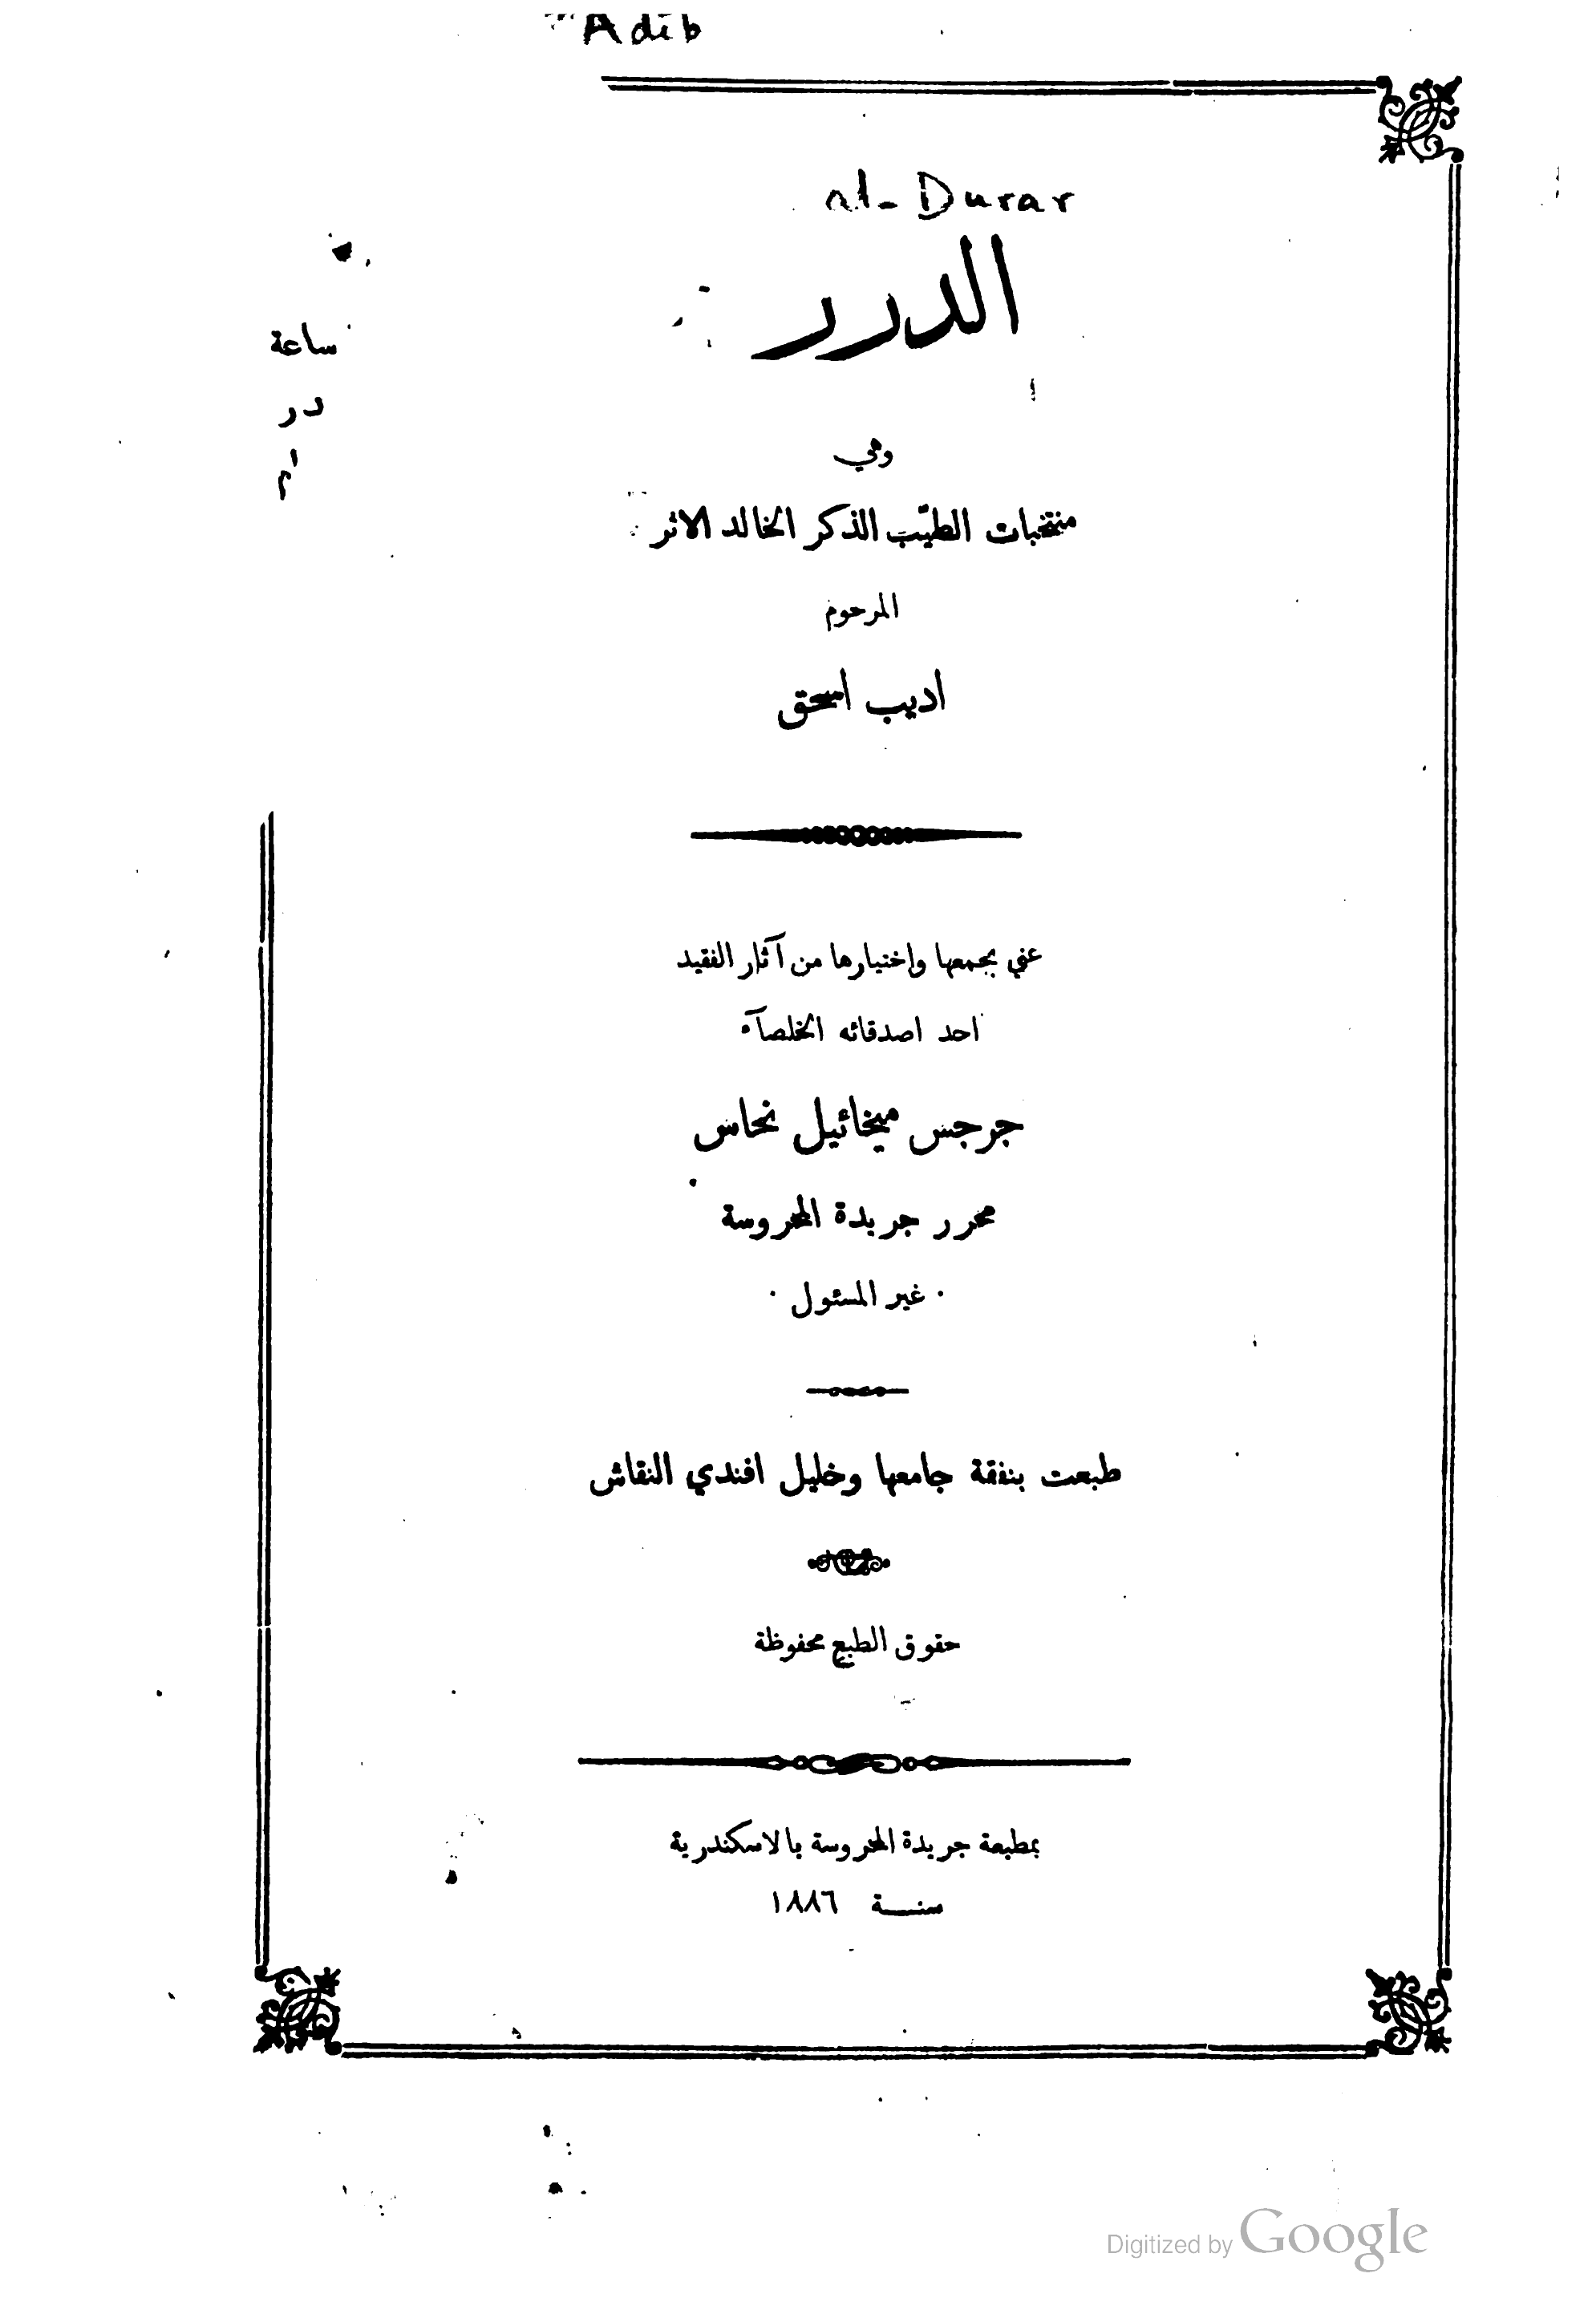 Adib
al-Durar
الدرر
ساعة
در
وهي
منتخبات الطيّب الذكر الخالد الاثر
المرحوم
اديب اسحق
عني بجمعها واختيارها من آثار الفقيد
احد اصدقائه الخلصآء
جرجس ميخائيل نحاس
محرر جريدة المحروسة
· غير المسئول ·
طبعت بنفقة جامعها وخليل افندي النقاش
حقوق الطبع محفوظة
بمطبعة جريدة المحروسة بالاسكندرية
سنة ١٨٨٦
Digitized by Google